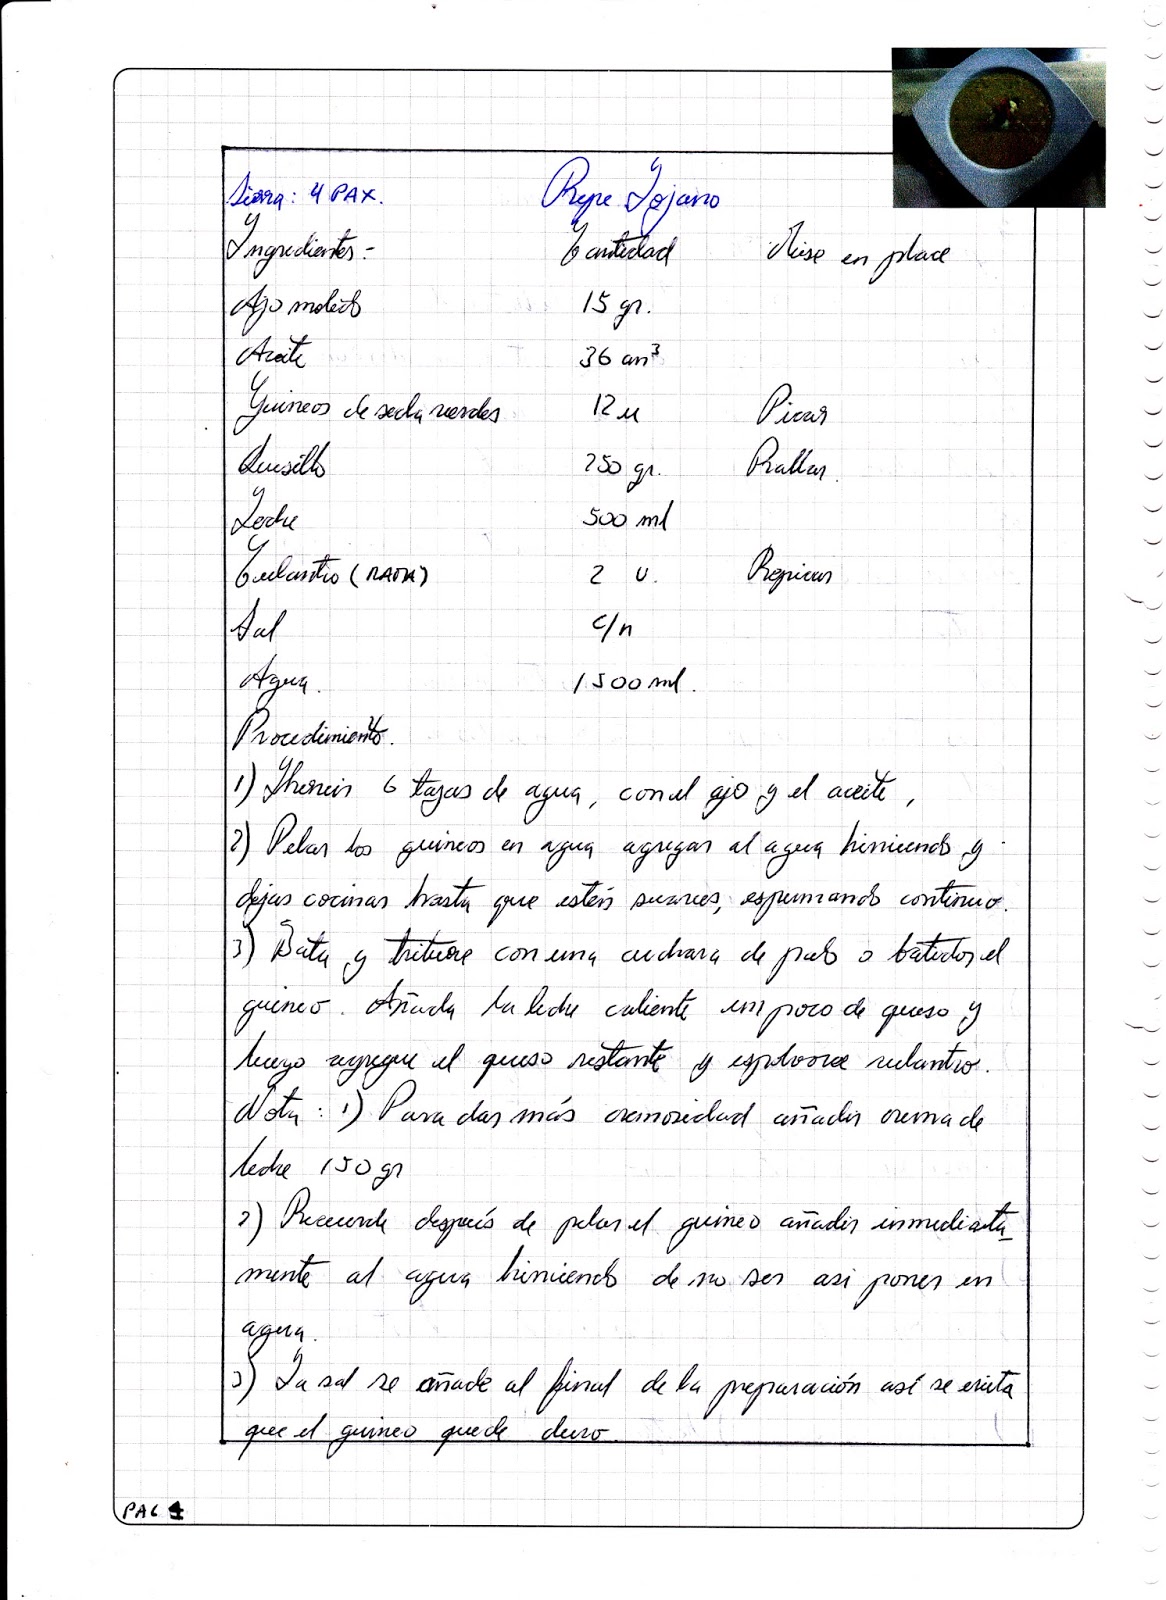 Sierra: 4 PAX. Repe Lojano
Ingredientes - Cantidad Mise en place
Ajo molido 15 gr.
Aceite 36 cm³
Guineos de seda verdes 12 u Picar
Quesillo 250 gr. Rallar.
Leche 500 ml
Culantro (RAMA) 2 U. Repicar
Sal c/n
Agua. 1500 ml.
Procedimiento.
1) Hervir 6 tazas de agua, con el ajo y el aceite,
2) Pelar los guineos en agua agregar al agua hirviendo y
dejar cocinar hasta que estén suaves, espumando continuo.
3) Bata y triture con una cuchara de palo o batidor el
guineo. Añada la leche caliente un poco de queso y
luego agregue el queso restante y espolvoree culantro.
Nota: 1) Para dar más cremosidad añadir crema de
leche 150 gr
2) Recuerde después de pelar el guineo añadir inmediata
mente al agua hirviendo de no ser asi poner en
agua.
3) La sal se añade al final de la preparación así se evita
que el guineo quede duro.
PAG 4